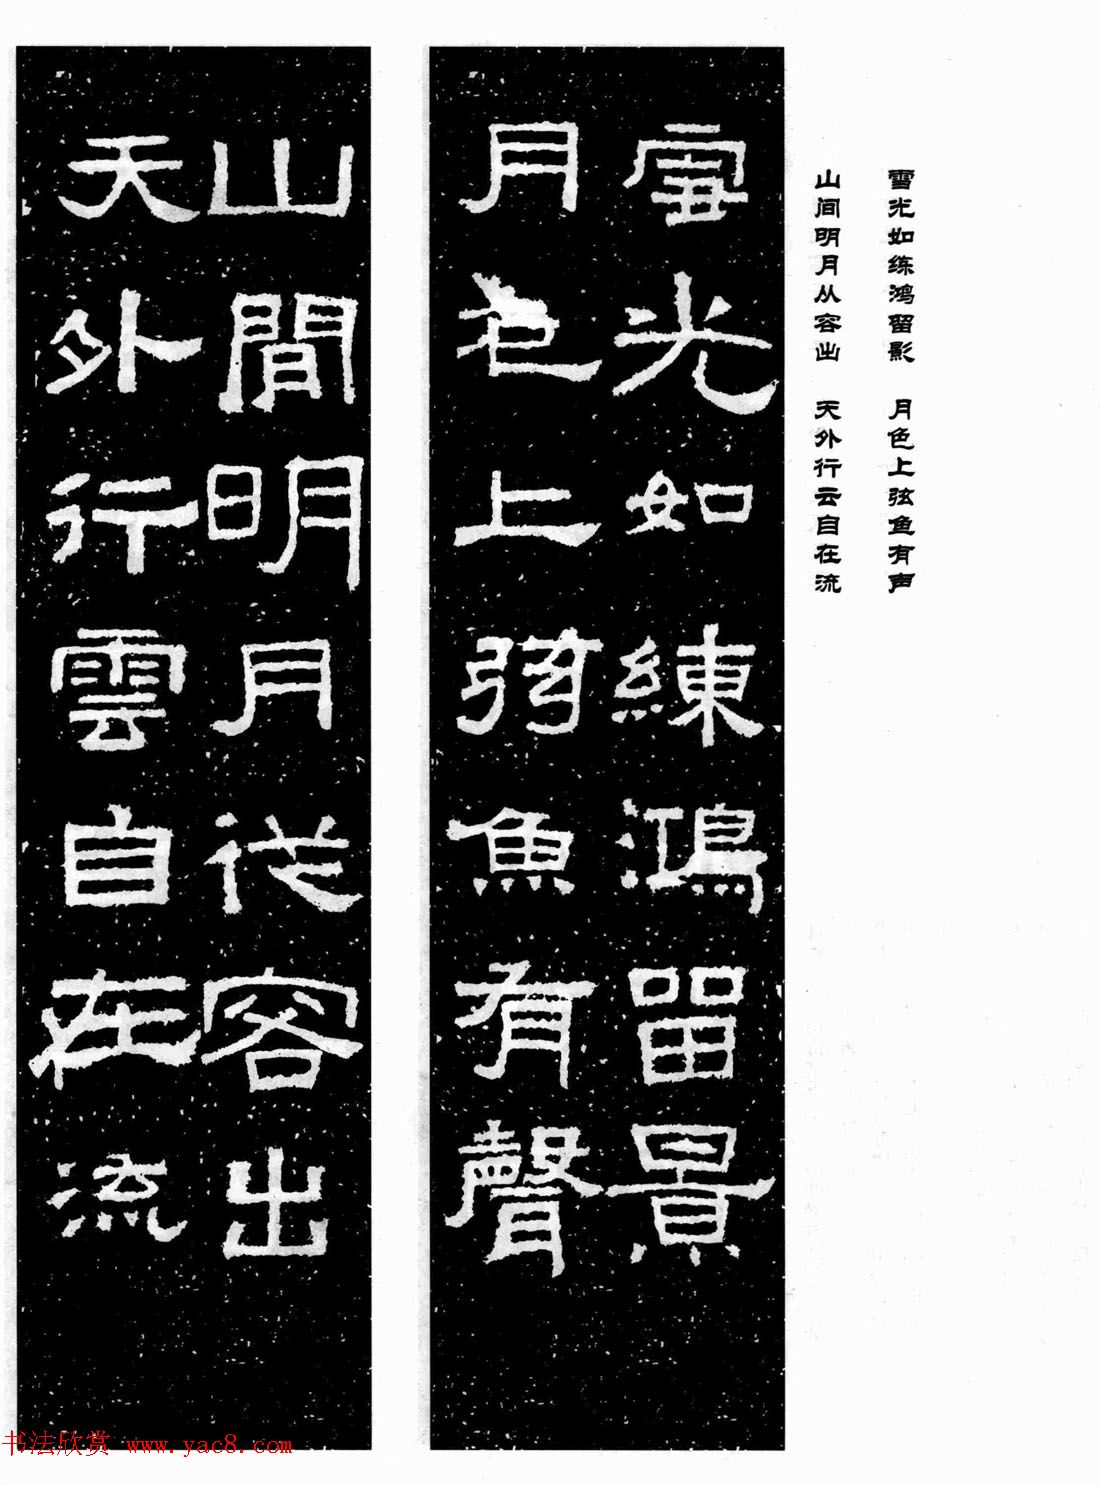 雪光如练鸿留影　月色上弦鱼有声
山间明月从容出　天外行云自在流
雪光如練鴻留景
月色上弦魚有聲
山間明月從容出
天外行雲自在流
书法欣赏 www.yac8.com